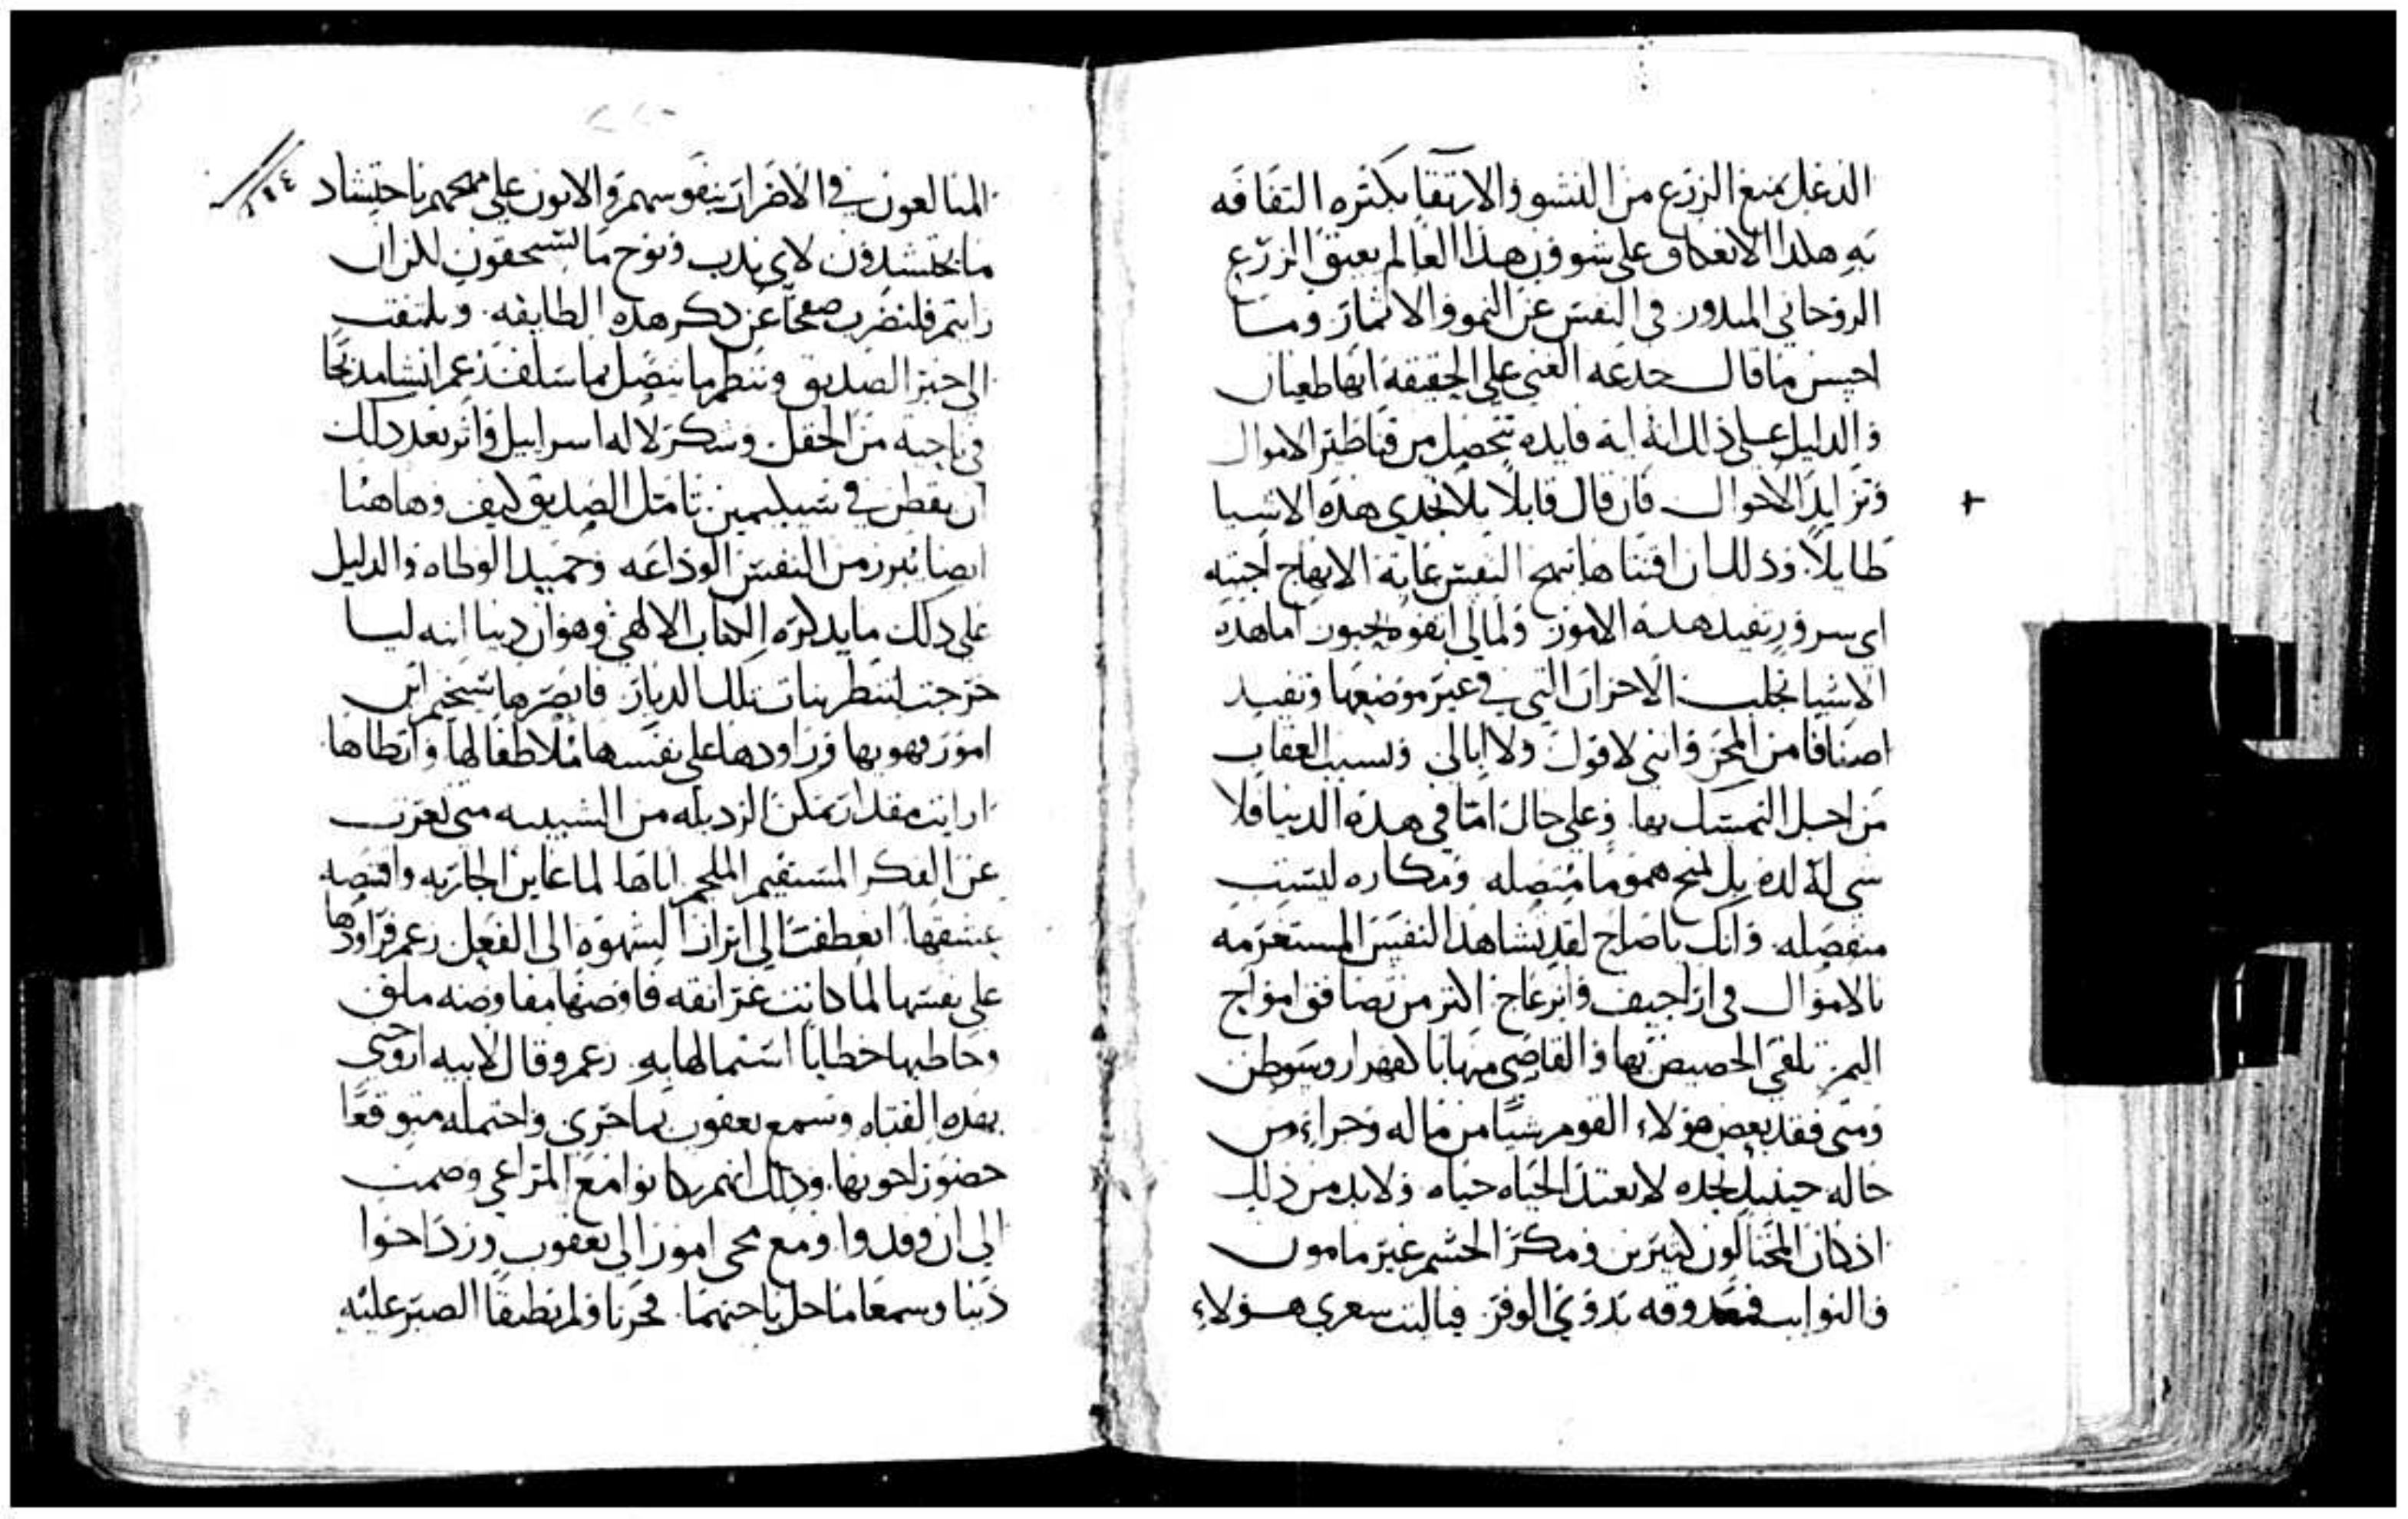 الدغل يمنع الزرع من النشو والارتقا بكثره التفافه
به هكذا الانعكاف على شوون هذا العالم يعيق الزرع
الروحاني المبذور في النفس عن النمو والاثمار وما
احسن ما قال خدعه الغني على الحقيقه انها طغيان
والدليل على ذلك انه اية فايده تتحصل من قناطير الاموال
وتزايد الاحوال فان قال قايلا بلا تجدي هذه الاشيا
طايلا وذلك ان اقتناها يمنح النفس غاية الابهاج اجبته
اي سرور تفيد هذه الامور ولما لي اتفوه بحبور اما هذه
الاشيا تجلب الاحزان التي في غير موضعها وتفيد
اصنافا من المحن وانني لاقول ولا ابالي وتسبب العقاب
من اجل التمسك بها وعلى حال اما في هذه الدنيا فلا
شي له لده بل تمنح هموما متصله ومكاره ليست
منفصله وانك ياصاح لقد تشاهد النفس المستغرمه
بالاموال في اراجيف وانزعاج اكثر من تصافق امواج
اليم تلقى الحصيص بها والقاصي منها
ومتى فقد بعض هولاء القوم شيا من ماله وجزاء من
حاله حينيد تجده لا يعتد الحياه حياه ولابد من ذلك
اذ كان المحتالون كثيرين ومكر الحشم غير مامون
والنوايب بذوي الوفر فياليت شعري هولاء
٢٢٠
٢٢٤
المبالغون في الاضرار بنفوسهم والاتون على مهجهم باحتشاد
ما يحتشدون لاي ندب ونوح ما يستحقون لكن ان
رايتم فلنضرب صفحا عن ذكر هذه الطايفه ونلتفت
الى خبر الصديق وننظم ما يتصل بما سلف زعم انشا مذبحا
في ناحية من الحقل وشكر لاله اسراييل واثر بعد ذلك
ان يقطن في شيكيمين تامل الصديق كيف وهاهنا
ايضا تبرز من النفس الوداعه وحميد الوطاه والدليل
على ذلك ما يذكره الكتاب الالهي وهو ان دينا ابنه ليا
خرجت لتنظر بنات تلك الديار فابصرها شخيم ابن
امور فهويها وراودها على نفسها ملاطفا لها وانطاها
ارايت مقدار تمكن الرذيله من الشبيبه متى تعزب
عن الفكر المستقيم الملجم اياها لما عاين الجاريه واقتنصه
عشقها انعطفت الى ابراز الشهوه الى الفعل زعم فراودها
على نفسها لما كانت غرانقه فاوضها مفاوضه ملق
وخاطبها خطابا استمالها به زعم وقال لابيه ازوجني
بهذه الفتاه وسمع يعقوب بما جرى واحتمله متوقعا
حضور اخوتها وذلك انهم كانوا مع المراعي وصمت
الى ان وفدوا ومع مجي امور الى يعقوب ورد اخوا
دينا وسمعا ما حل باختهما فحزنا ولم يطيقا الصبر عليه